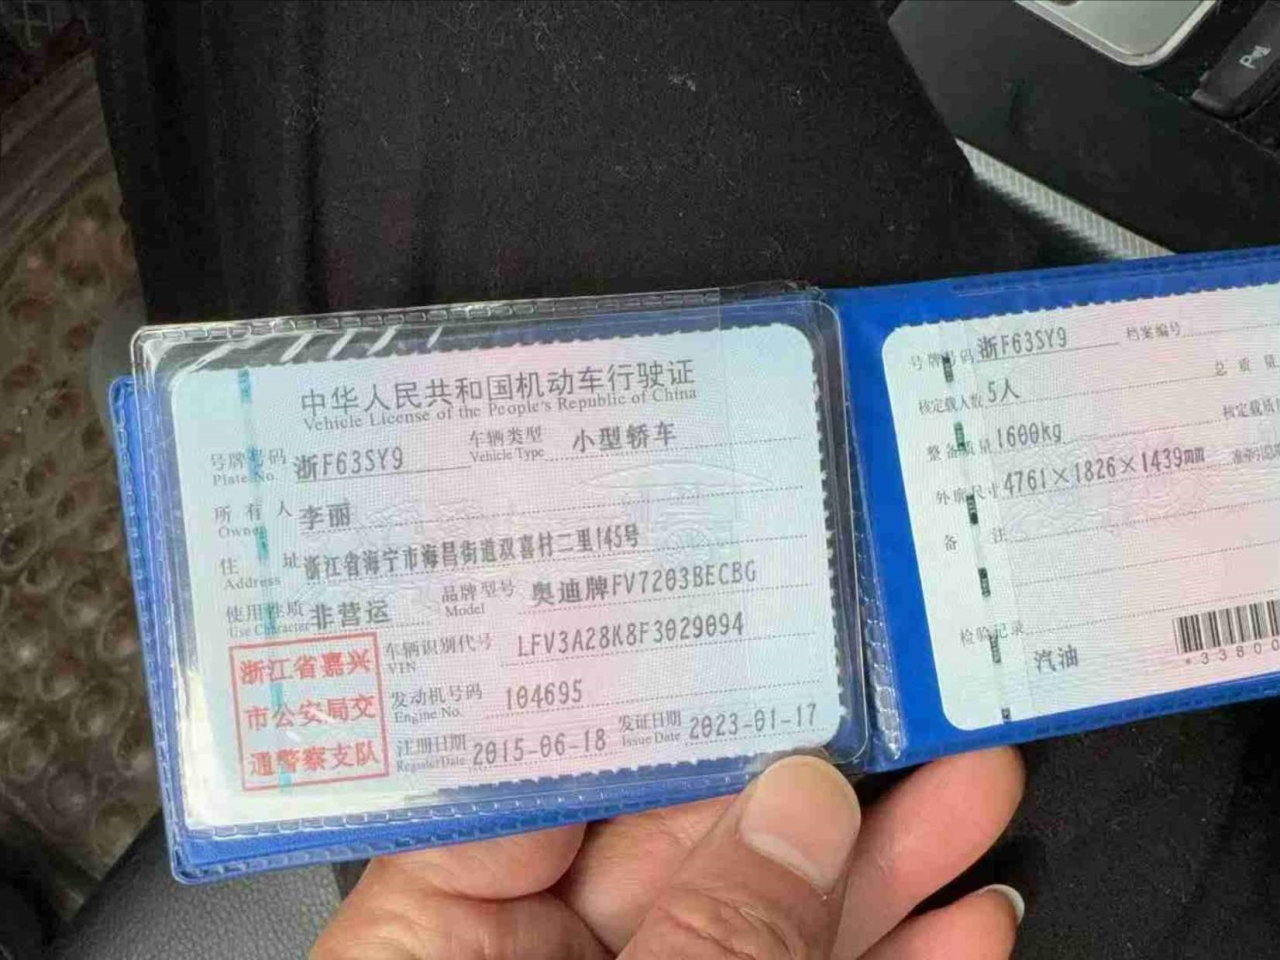 中华人民共和国机动车行驶证
Vehicle License of the People's Republic of China
号牌号码 浙F63SY9 车辆类型 小型轿车
Plate No. Vehicle Type
所有人 李丽
Owner
住址 浙江省海宁市海昌街道双喜村二里145号
Address
使用性质 非营运 品牌型号 奥迪牌FV7203BECBG
Use Character Model
车辆识别代号 LFV3A28K8F3029094
VIN
发动机号码 104695
Engine No.
注册日期 2015-06-18 发证日期 2023-01-17
Register Date Issue Date
浙江省嘉兴
市公安局交
通警察支队
号牌号码 浙F63SY9 档案编号
核定载人数 5人 总质量
整备质量 1600kg 核定载质
外廓尺寸 4761×1826×1439mm
备注
检验记录
汽油
*33800
P